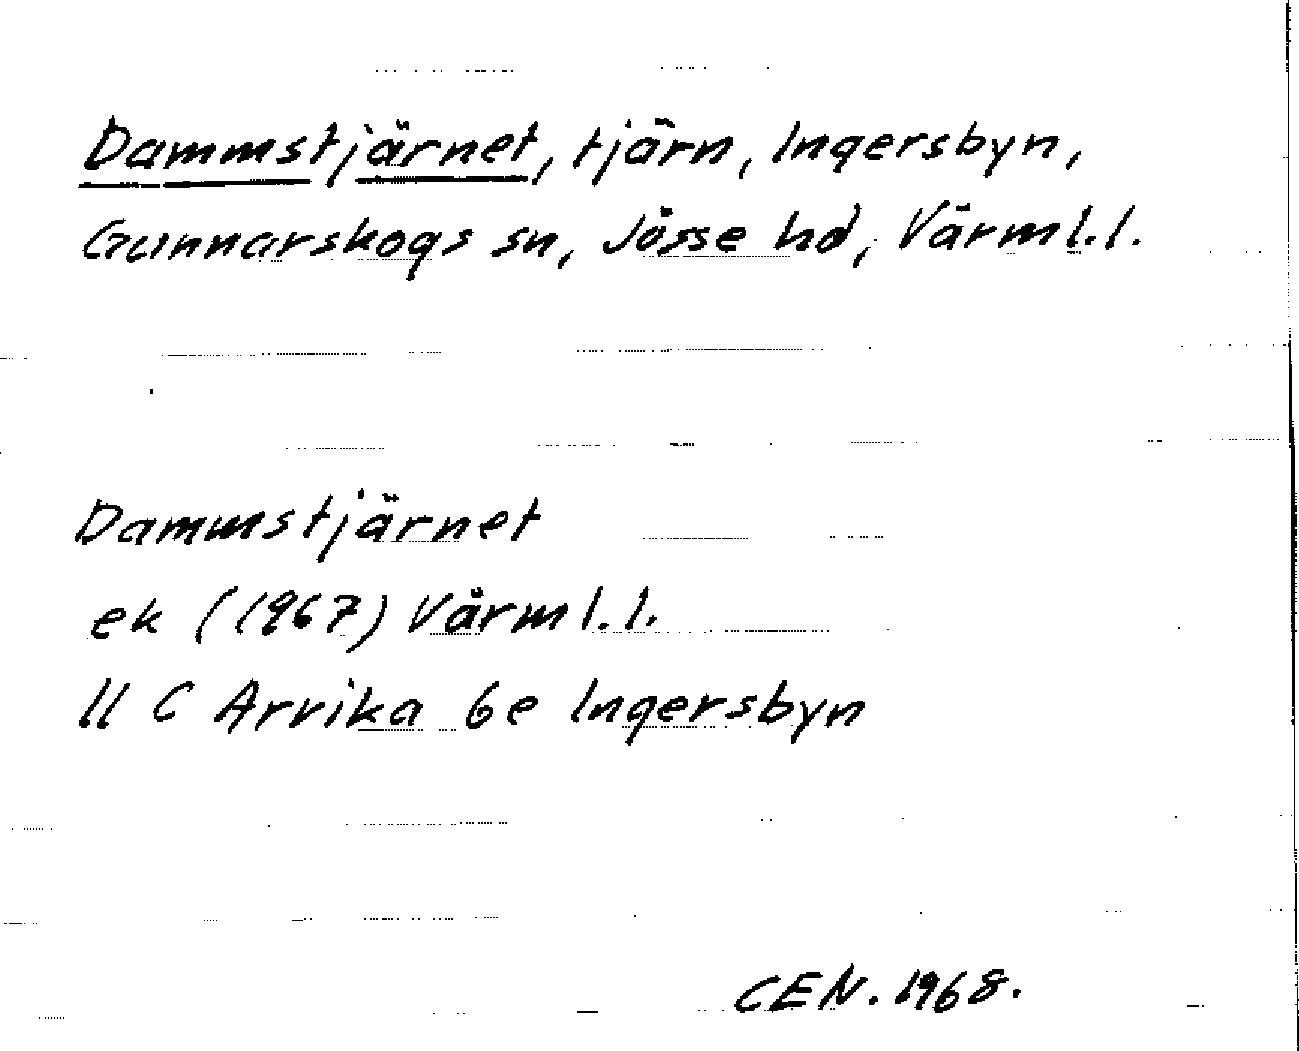 Dammstjärnet, tjärn, Ingersbyn,
Gunnarskogs sn, Jösse hd, Värml.l.
Dammstjärnet
ek (1967) Värml.l.
11 C Arvika 6e Ingersbyn
CEN. 1968.